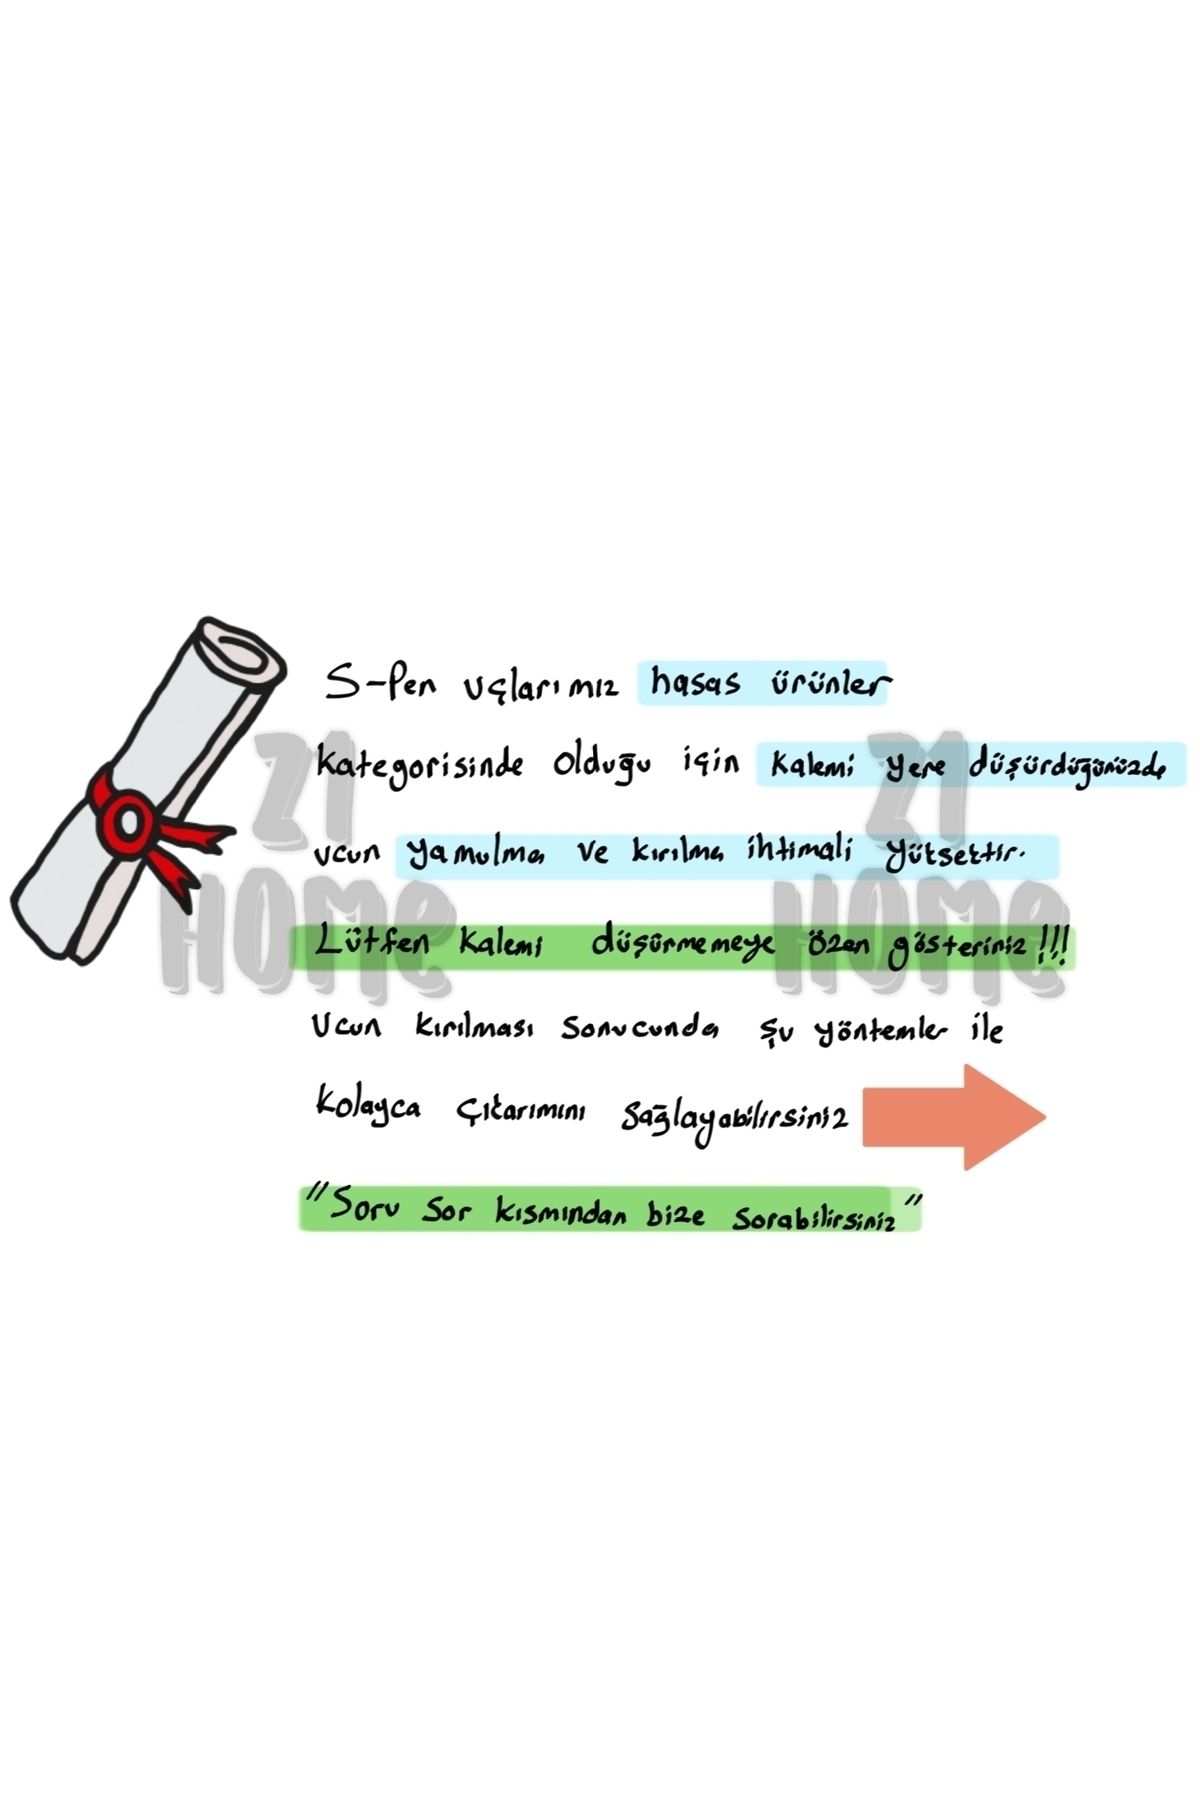 S-Pen uçlarımız hasas ürünler
kategorisinde olduğu için kalemi yere düşürdüğünüzde
ucun yamulma ve kırılma ihtimali yütsettir.
Lütfen kalemi düşürmemeye özen gösteriniz!!!
Ucun kırılması sonucunda şu yöntemler ile
kolayca çıtarımını sağlayabilirsiniz
"Soru sor kısmından bize sorabilirsiniz"
21 21
HOMe HOMe